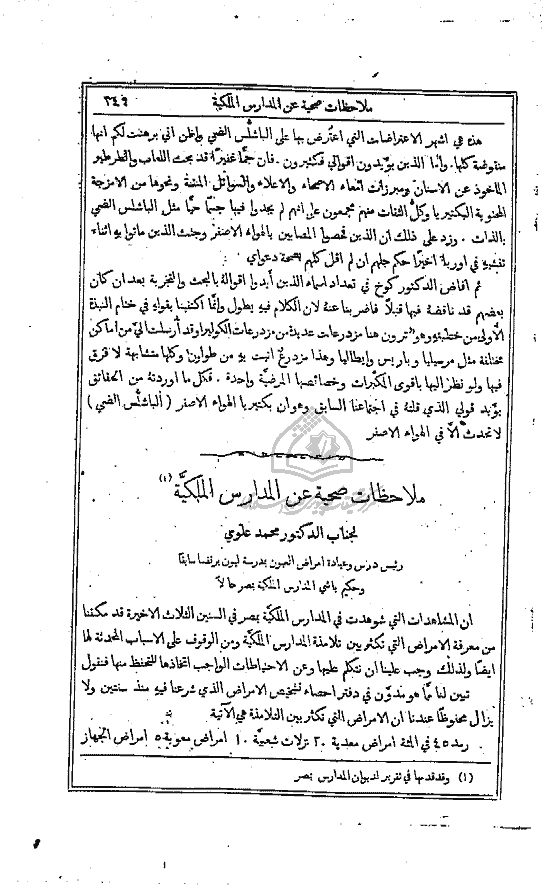 ملاحظات صحية عن المدارس الملكية ٢٤٩
هذه هي اشهر الاعتراضات التي اعتُرض بها على الباشلّس الضمي واظن اني برهنت لكم انها
منقوضة كلها. وامّا الذين يؤيدون اقوالي فكثيرون. فان جمًّا غفيرًا قد بحث اللعاب والطرطير
الماخوذ عن الاسنان ومبرزات امعاء الاصحاء والاعلاء والسوائل المنتنة ونحوها من الامزجة
المحنوية البكتيريا وكل الثقات منهم مجمعون على انهم لم يجدوا فيها جسمًا حيًّا مثل الباشلس الضمي
بالذات. وزد على ذلك ان الذين فحصوا المصابين بالهواء الاصفر وجثث الذين ماتوا به اثناء
تفشيه في اوربة اخيرًا حكم جلهم ان لم اقل كلهم بصحة دعواي
ثم افاض الدكتور كوخ في تعداد اسماء الذين أيدوا اقواله بالبحث والتجربة بعد ان كان
بعضهم قد ناقضه فيها قبلاً فاضربنا عنه لان الكلام فيه يطول وانما اكتفينا بقوله في ختام النبذة
الأولى من خطبته وهو "ترون هنا مزدرعات عديدة من مزدرعات الكوليرا وقد أرسلت اليّ من اماكن
مختلفة مثل مرسيليا وباريس وايطاليا وهذا مزدرع اتيت به من طولون وكلها متشابهة لا فرق
فيها ولو نظر اليها باقوى المكبرات وخصائصها المرضية واحدة. فكل ما اوردته من الحقائق
يؤيد قولي الذي قلته في اجتماعنا السابق وهو ان بكتيريا الهواء الاصفر (الباشلّس الضمي)
لا تحدث الّا في الهواء الاصفر
ملاحظات صحية عن المدارس الملكيَّة (١)
لجناب الدكتور محمد علوي
رئيس درس وعيادة امراض العيون بمدرسة ليون بفرنسا سابقًا
وحكيم باشي المدارس الملكية بمصر حالاً
ان المشاهدات التي شوهدت في المدارس الملكيَّة بمصر في السنين الثلاث الاخيرة قد مكنتنا
من معرفة الامراض التي تكثر بين تلامذة المدارس الملكية ومن الوقوف على الاسباب المحدثة لها
ايضًا ولذلك وجب علينا ان نتكلم عليها وعن الاحتياطات الواجب اتخاذها للتحفظ منها فنقول
تبين لنا ممّا هو مدوّن في دفتر احصاء تشخيص الامراض الذي شرعنا فيه منذ سنتين ولا
يزال محفوظًا عندنا ان الامراض التي تكثر بين التلامذة هي الآتية
رمد ٤٥ في المئة امراض معدية ٢٠ نزلات شعبيَّة ١٠ امراض معوية ٥ امراض الجهاز
(١) وقد قدمها في تقرير لديوان المدارس بمصر